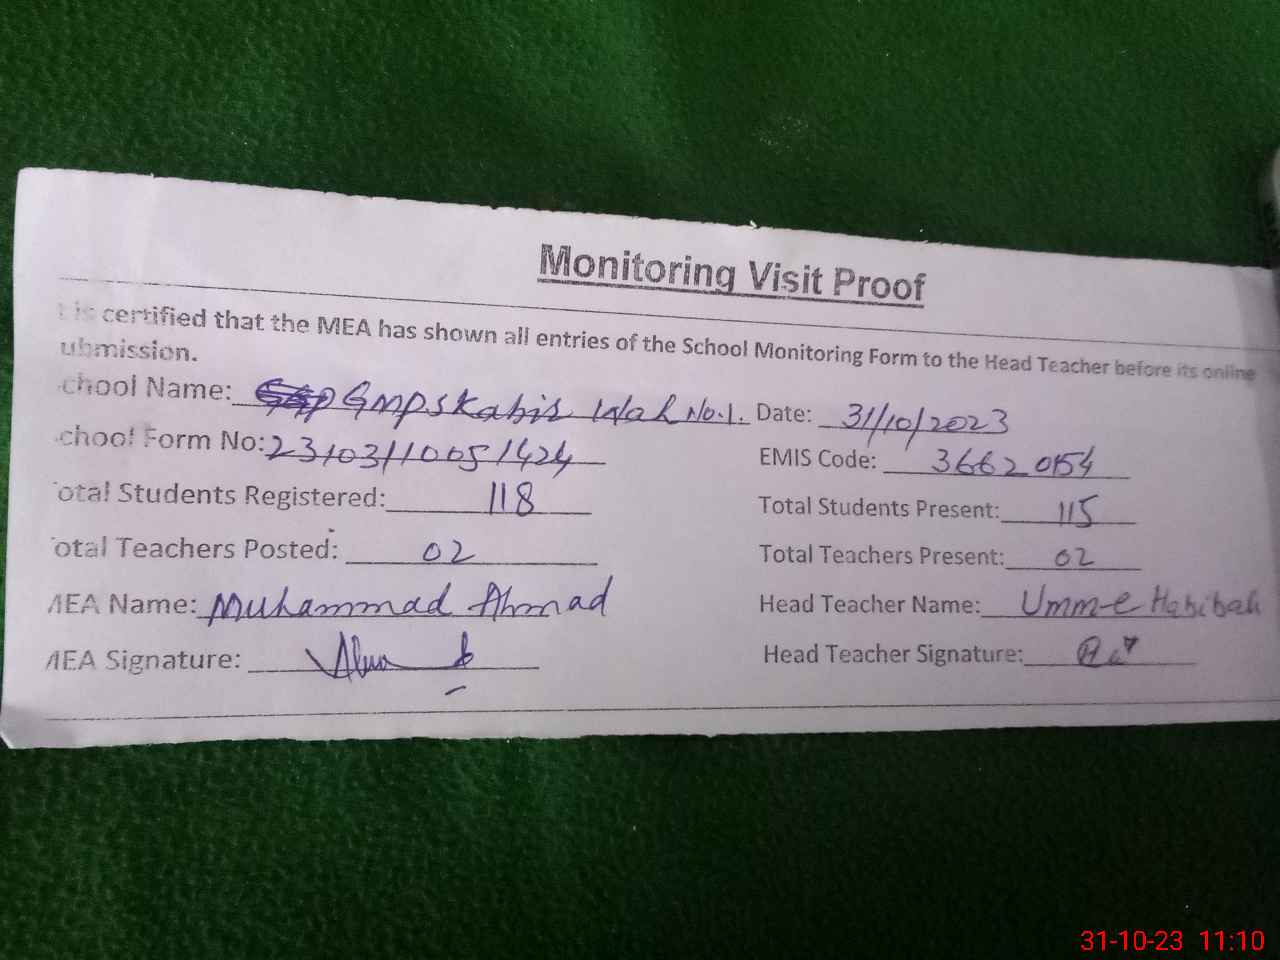 Monitoring Visit Proof
t is certified that the MEA has shown all entries of the School Monitoring Form to the Head Teacher before its online
ubmission.
chool Name: GMPS Kabir Wah No.1. Date: 31/10/2023
chool Form No: 23103110051424 EMIS Code: 36620154
otal Students Registered: 118 Total Students Present: 115
otal Teachers Posted: 02 Total Teachers Present: 02
MEA Name: Muhammad Ahmad Head Teacher Name: Umm-e Habibah
MEA Signature: Head Teacher Signature:
31-10-23 11:10